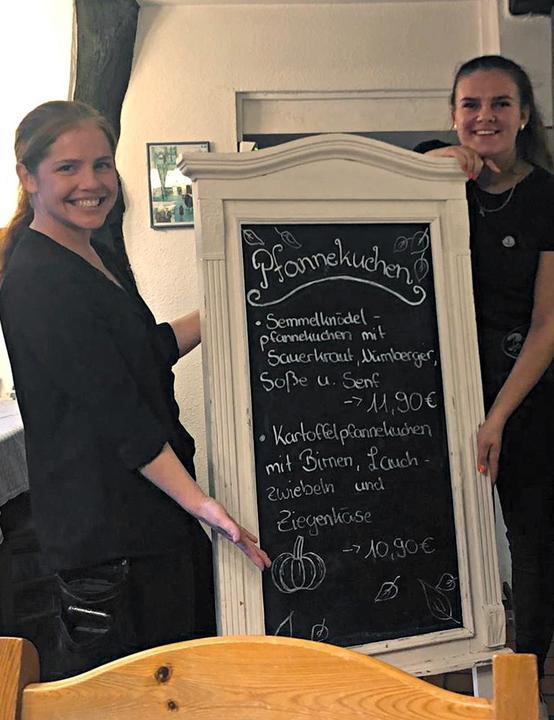 Pfannekuchen
• Semmelknödel-
pfannekuchen mit
Sauerkraut, Nürnberger,
Soße u. Senf
-> 11,90€
• Kartoffelpfannekuchen
mit Birnen, Lauch-
zwiebeln und
Ziegenkäse
-> 10,90€